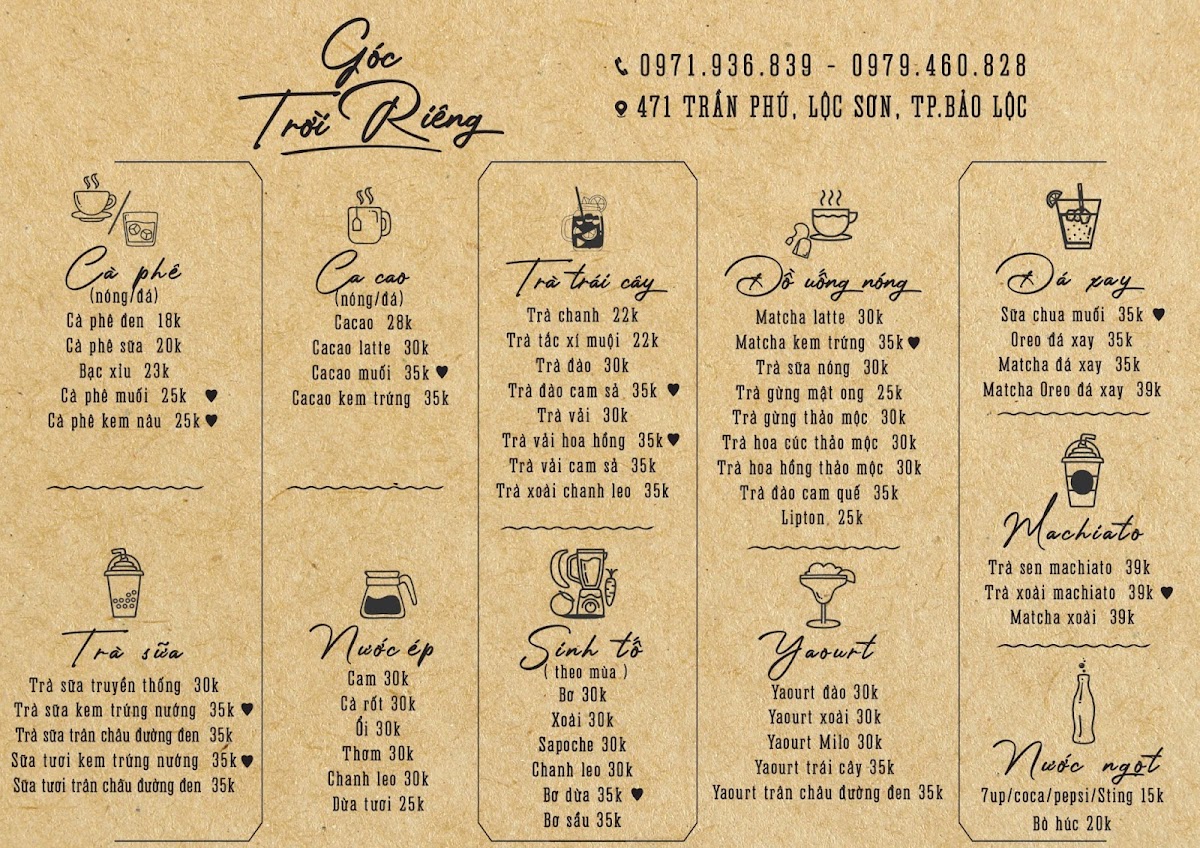 Góc
Trời Riêng
0971.936.839 - 0979.460.828
471 TRẦN PHÚ, LỘC SƠN, TP.BẢO LỘC
Cà phê
(nóng/đá)
Cà phê đen 18k
Cà phê sữa 20k
Bạc xỉu 23k
Cà phê muối 25k ♥
Cà phê kem nâu 25k ♥
Trà sữa
Trà sữa truyền thống 30k
Trà sữa kem trứng nướng 35k ♥
Trà sữa trân châu đường đen 35k
Sữa tươi kem trứng nướng 35k ♥
Sữa tươi trân châu đường đen 35k
Ca cao
(nóng/đá)
Cacao 28k
Cacao latte 30k
Cacao muối 35k ♥
Cacao kem trứng 35k
Nước ép
Cam 30k
Cà rốt 30k
Ổi 30k
Thơm 30k
Chanh leo 30k
Dừa tươi 25k
Trà trái cây
Trà chanh 22k
Trà tắc xí muội 22k
Trà đào 30k
Trà đào cam sả 35k ♥
Trà vải 30k
Trà vải hoa hồng 35k ♥
Trà vải cam sả 35k
Trà xoài chanh leo 35k
Sinh tố
( theo mùa )
Bơ 30k
Xoài 30k
Sapoche 30k
Chanh leo 30k
Bơ dừa 35k ♥
Bơ sầu 35k
Đồ uống nóng
Matcha latte 30k
Matcha kem trứng 35k ♥
Trà sữa nóng 30k
Trà gừng mật ong 25k
Trà gừng thảo mộc 30k
Trà hoa cúc thảo mộc 30k
Trà hoa hồng thảo mộc 30k
Trà đào cam quế 35k
Lipton 25k
Yaourt
Yaourt đào 30k
Yaourt xoài 30k
Yaourt Milo 30k
Yaourt trái cây 35k
Yaourt trân châu đường đen 35k
Đá xay
Sữa chua muối 35k ♥
Oreo đá xay 35k
Matcha đá xay 35k
Matcha Oreo đá xay 39k
Machiato
Trà sen machiato 39k
Trà xoài machiato 39k ♥
Matcha xoài 39k
Nước ngọt
7up/coca/pepsi/Sting 15k
Bò húc 20k